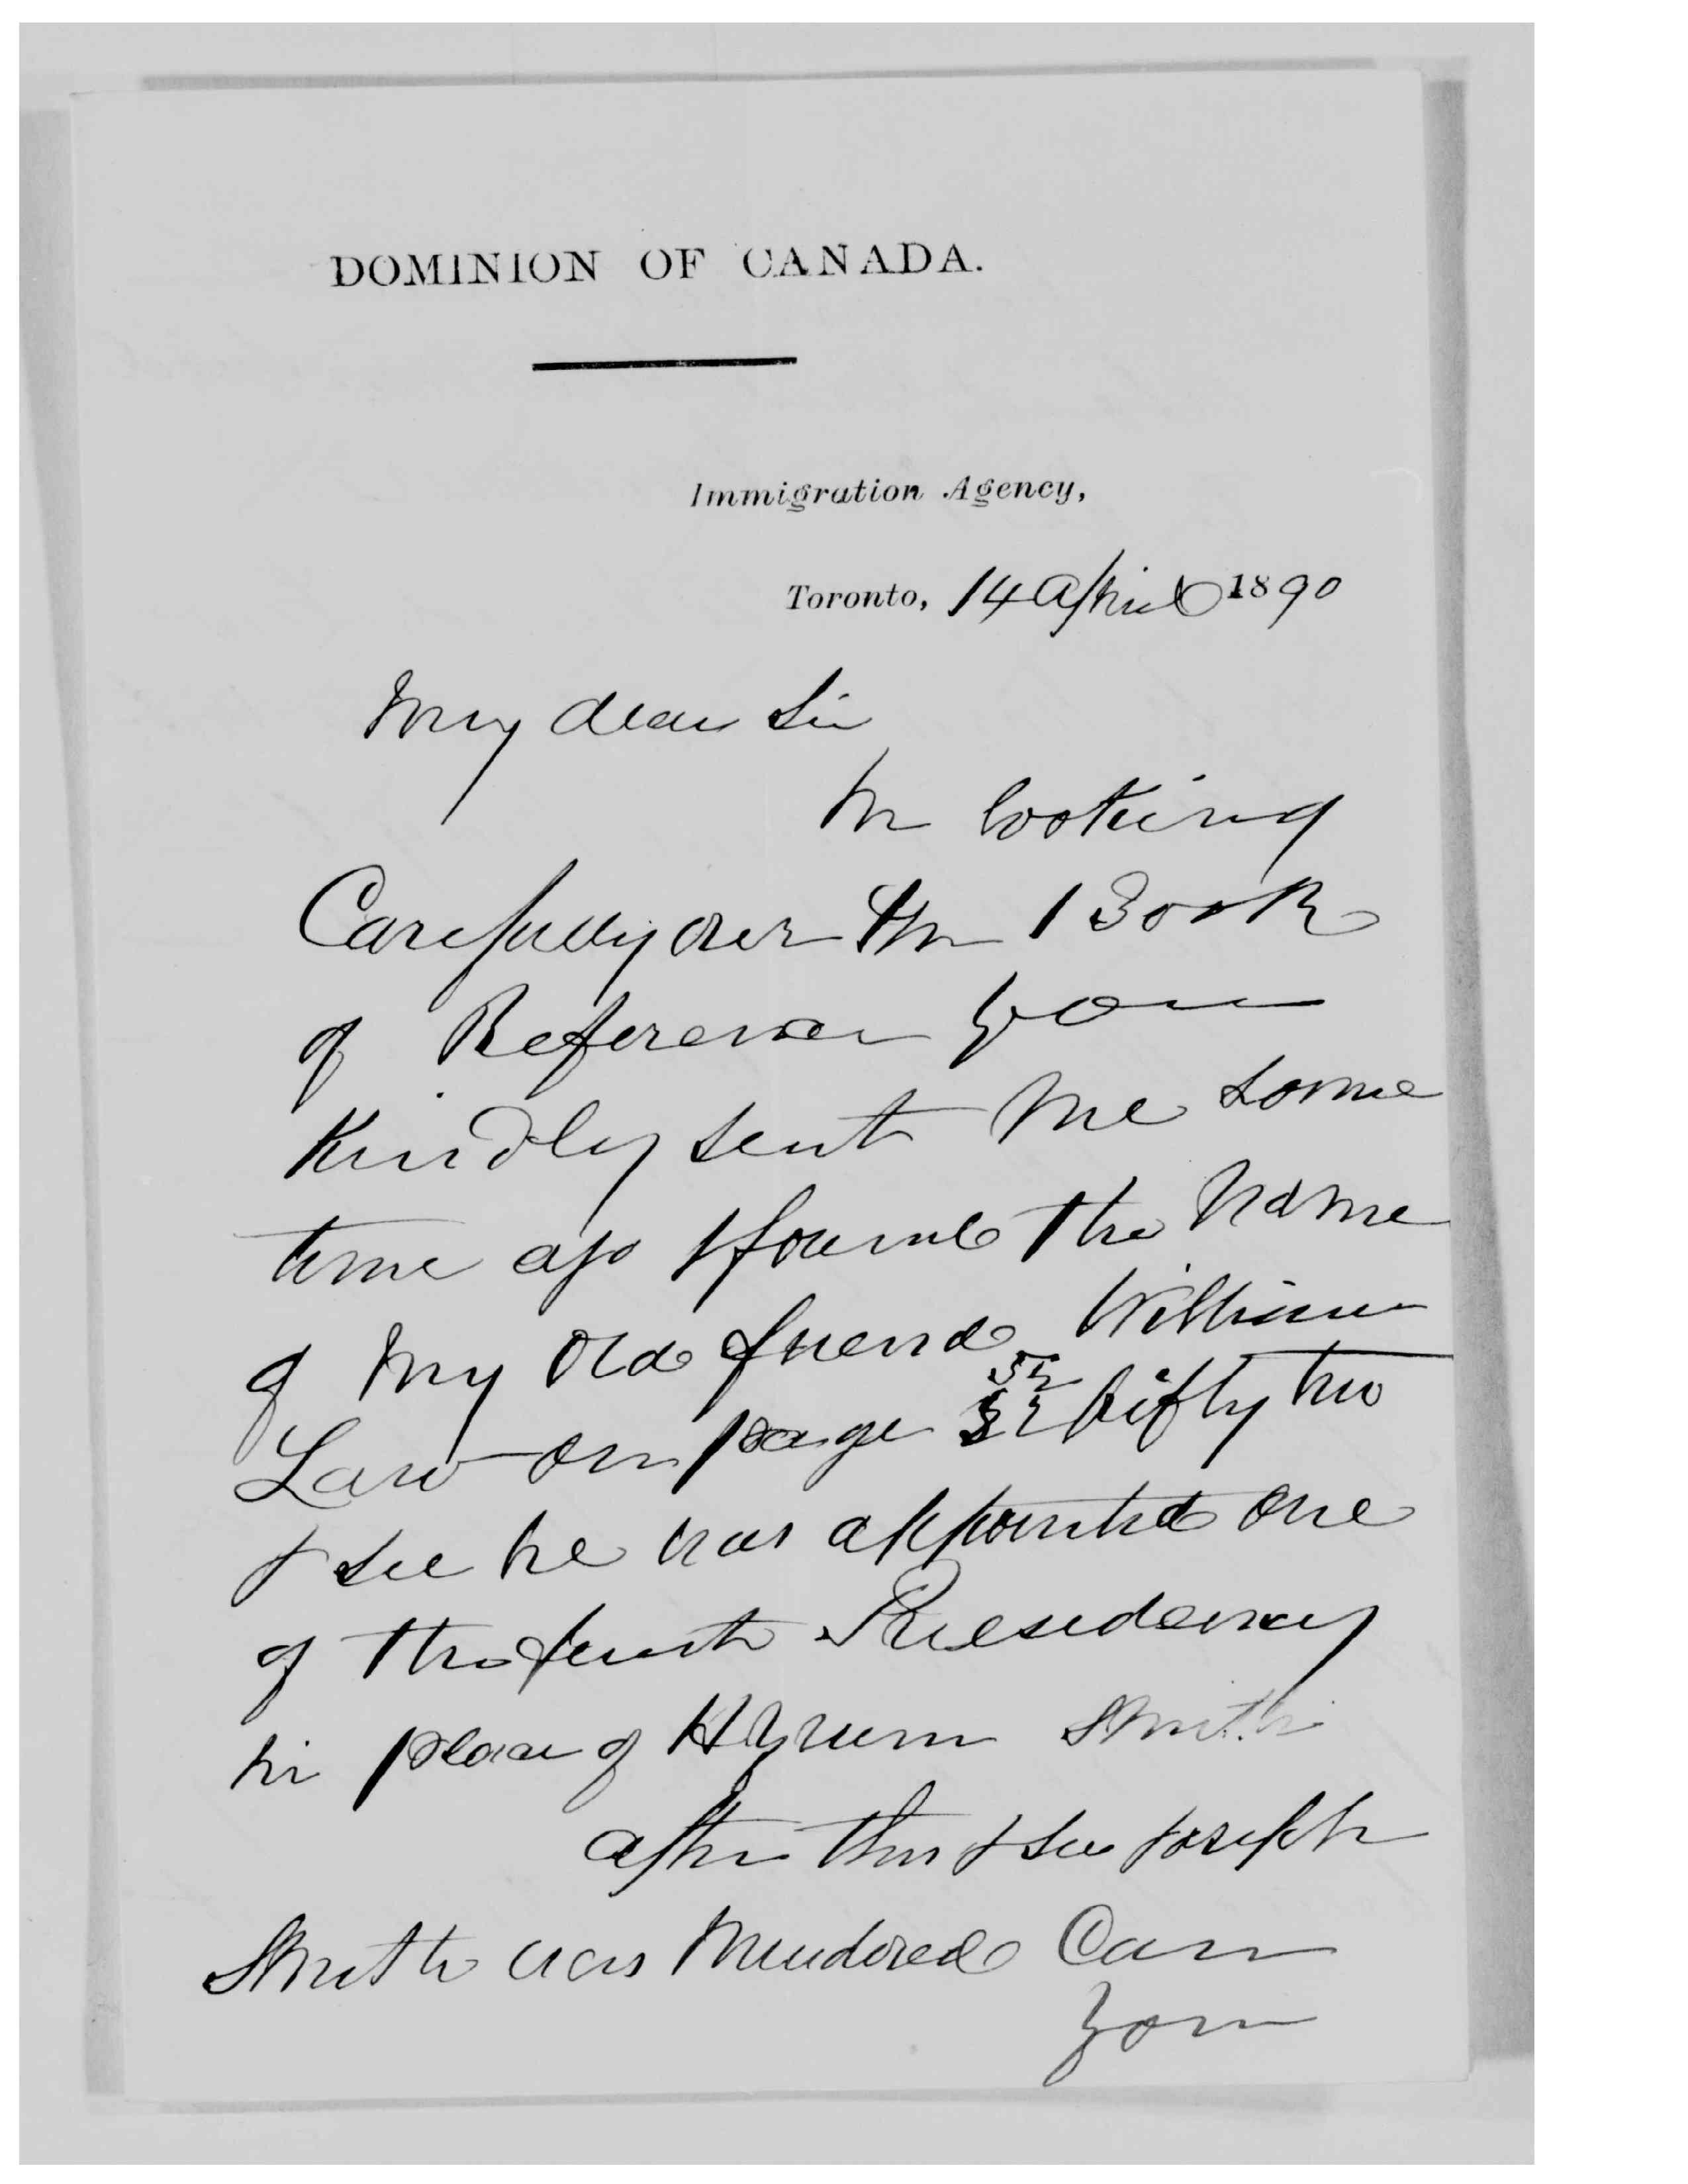 DOMINION OF CANADA.
Immigration Agency,
Toronto, 14 April 1890
My dear Sir
In looking
Carefully over the Book
of Reference you
Kindly sent me some
time ago I found the Name
of My Old friend William
52
Law on page 52 fifty two
I see he was appointed one
of the first Presidency
in place of Hyrum Smith
after this I see Joseph
Smith was Murdered Can
you